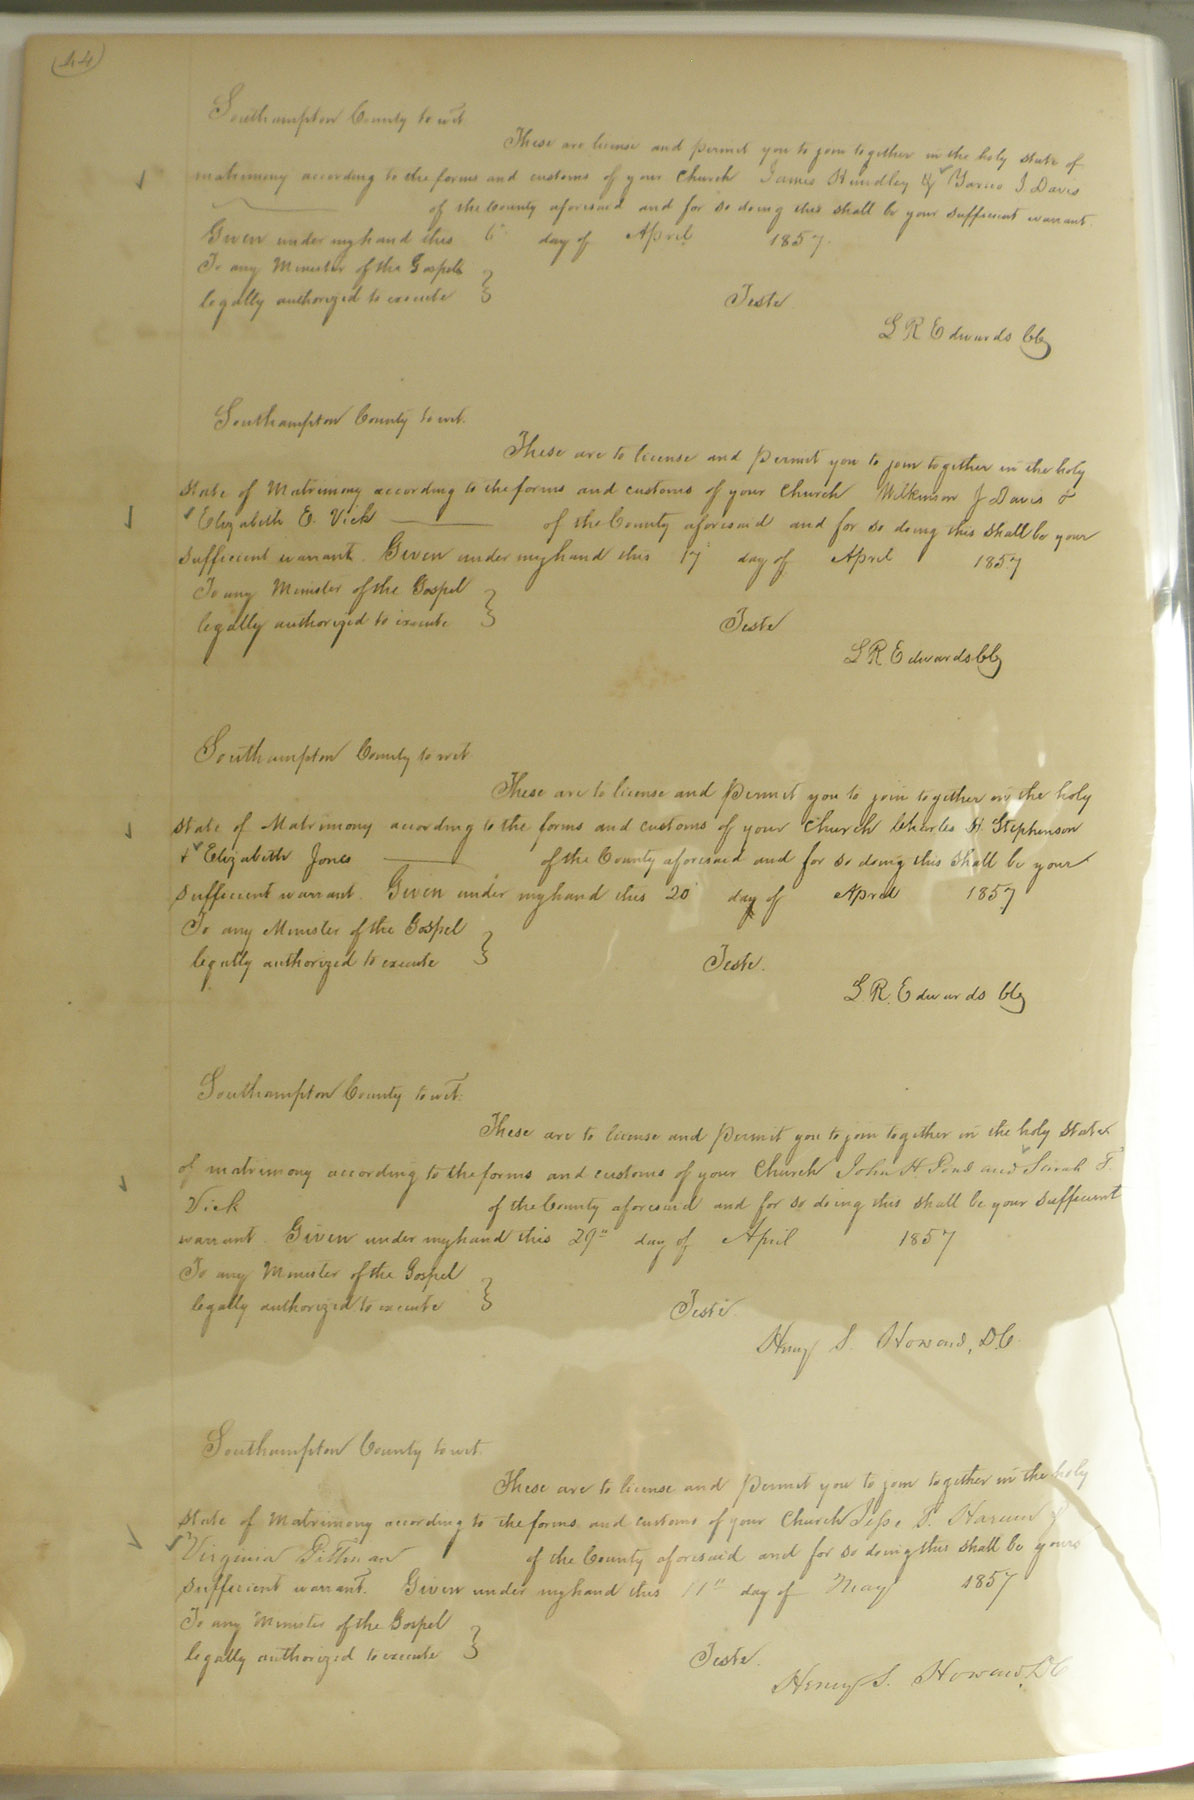 44
Southampton County to wit
These are license and permit you to join together in the holy state of
matrimony according to the forms and customs of your Church James Hundley & J Davis
of the County aforesaid and for so doing this shall be your sufficient warrant
Given under my hand this 6 day of April 1857.
To any Minister of the Gospel
legally authorized to execute Teste
L R Edwards Clk
Southampton County to wit.
These are to license and permit you to join together in the holy
state of Matrimony according to the forms and customs of your Church Wilkinson J Davis &
Elizabeth E. Vick of the County aforesaid and for so doing this shall be your
sufficient warrant. Given under my hand this 17 day of April 1857
To any Minister of the Gospel
legally authorized to execute Teste
L R Edwards Clk
Southampton County to wit
These are to license and permit you to join together in the holy
state of Matrimony according to the forms and customs of your Church Charles H. Stephenson
& Elizabeth Jones of the County aforesaid and for so doing this shall be your
sufficient warrant. Given under my hand this 20 day of April 1857
To any Minister of the Gospel
legally authorized to execute Teste.
L R. Edwards Clk
Southampton County to wit.
These are to license and permit you to join together in the holy state
of matrimony according to the forms and customs of your Church John H. Pond and Sarah F.
Vick of the County aforesaid and for so doing this shall be your sufficient
warrant Given under my hand this 29" day of April 1857
To any Minister of the Gospel
legally authorized to execute Teste.
Henry S. Howard, D.C.
Southampton County to wit.
These are to license and permit you to join together in the holy
state of Matrimony according to the forms and customs of your Church Jesse P. &
Virginia Pittman of the County aforesaid and for so doing this shall be yours
sufficient warrant. Given under my hand this 11" day of May 1857
To any Minister of the Gospel
legally authorized to execute Teste.
Henry S. Howard, DC